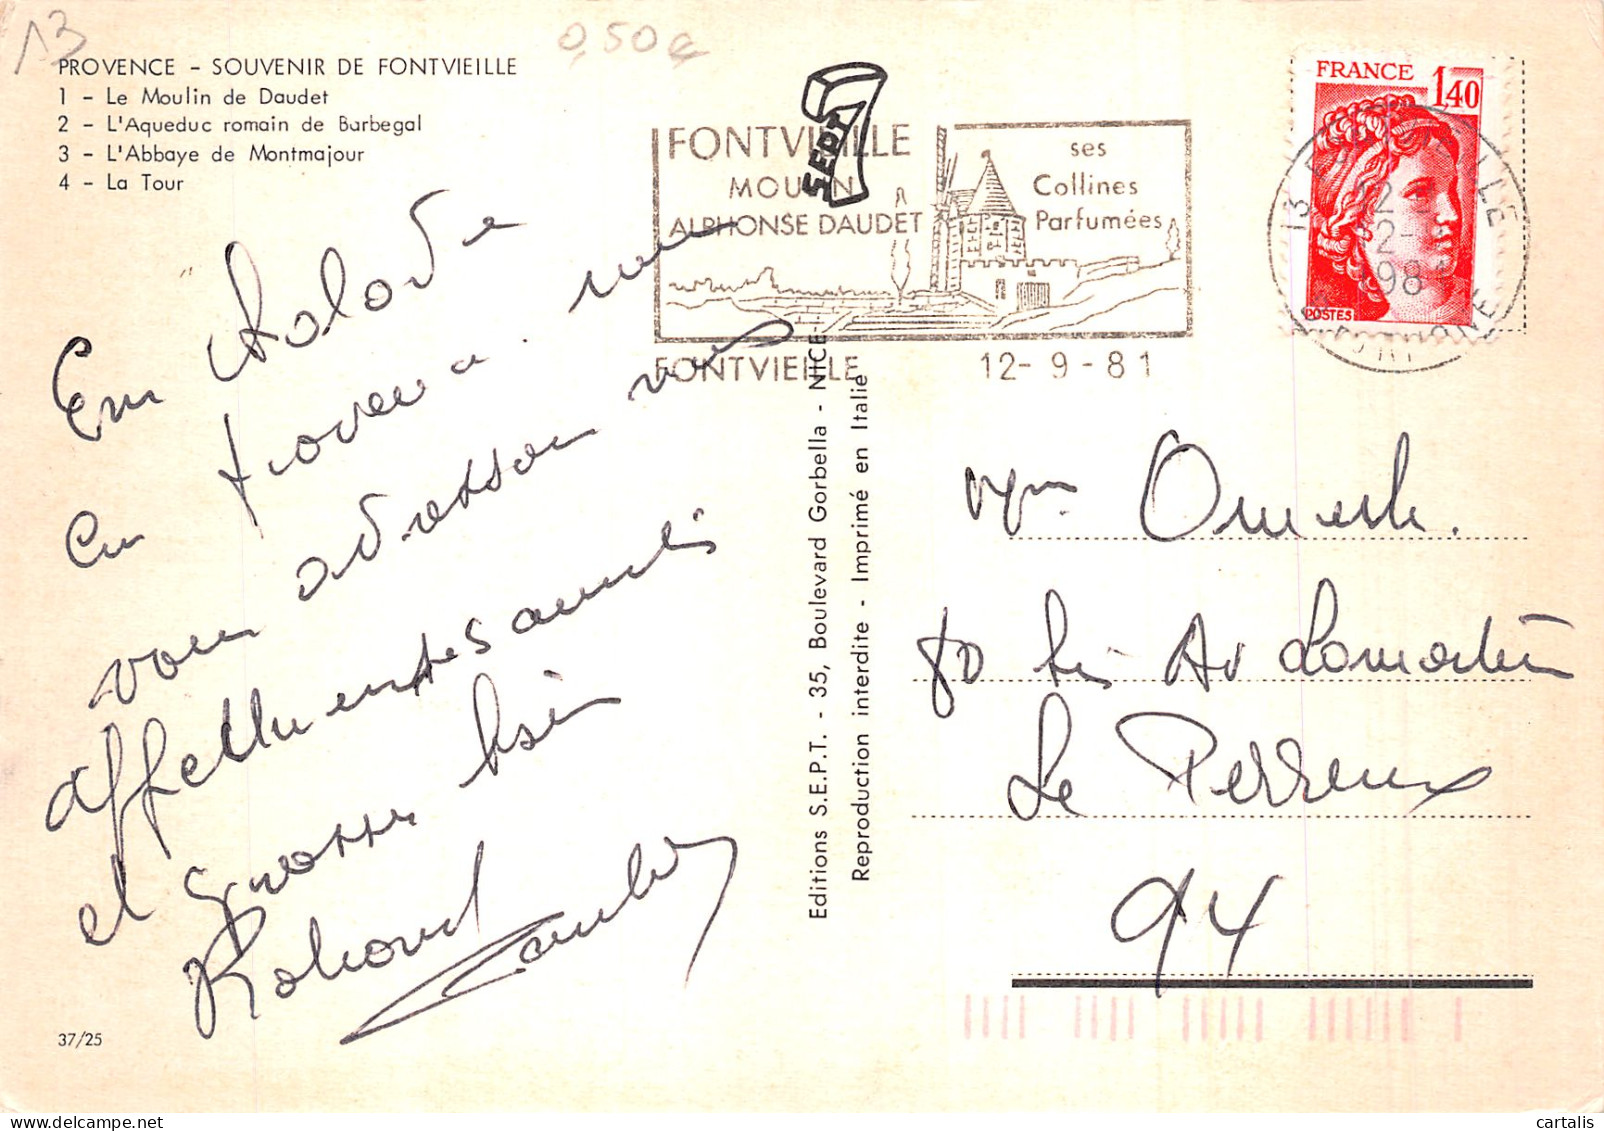 13
0,50 €
PROVENCE - SOUVENIR DE FONTVIEILLE
1 - Le Moulin de Daudet
2 - L'Aqueduc romain de Barbegal
3 - L'Abbaye de Montmajour
4 - La Tour
SEPT
FONTVIEILLE
MOULIN
ALPHONSE DAUDET
ses
Collines
Parfumées
FONTVIEILLE
12-9-81
FRANCE 1,40
POSTES
En balade
en
vous adressons nos
affectueuses amitiés
et grosses bises
Editions S.E.P.T. - 35, Boulevard Gorbella - NICE
Reproduction interdite - Imprimé en Italie
80 bis Av Lamartine
Le Perreux
94
37/25
cartalis